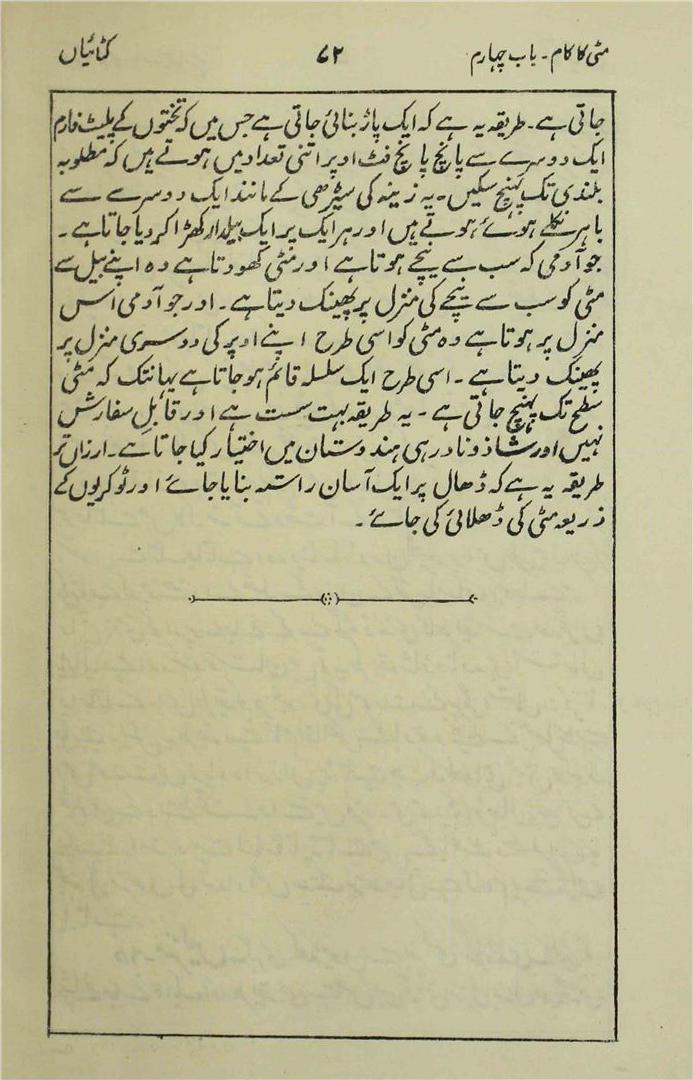 مٹی کا کام۔ باب چہارم ۷۲ کٹائیاں
جاتی ہے۔ طریقہ یہ ہے کہ ایک پاڑ بنائی جاتی ہے جس میں کہ تختوں کے پلیٹ فارم
ایک دوسرے سے پانچ پانچ فٹ اوپر اتنی تعداد میں ہوتے ہیں کہ مطلوبہ
بلندی تک پہنچ سکیں۔ یہ زینہ کی سیڑھی کے مانند ایک دوسرے سے
باہر نکلے ہوئے ہوتے ہیں اور ہر ایک پر ایک بیلدار کھڑا کر دیا جاتا ہے۔
جو آدمی کہ سب سے نیچے ہوتا ہے اور مٹی کھودتا ہے وہ اپنے بیل سے
مٹی کو سب سے نیچے کی منزل پر پھینک دیتا ہے۔ اور جو آدمی اس
منزل پر ہوتا ہے وہ مٹی کو اسی طرح اپنے اوپر کی دوسری منزل پر
پھینک دیتا ہے۔ اسی طرح ایک سلسلہ قائم ہو جاتا ہے یہانتک کہ مٹی
سطح تک پہنچ جاتی ہے۔ یہ طریقہ بہت سست ہے اور قابلِ سفارش
نہیں اور شاذ و نادر ہی ہندوستان میں اختیار کیا جاتا ہے۔ ارزاں تر
طریقہ یہ ہے کہ ڈھال پر ایک آسان راستہ بنایا جائے اور ٹوکریوں کے
ذریعہ مٹی کی ڈھلائی کی جائے۔